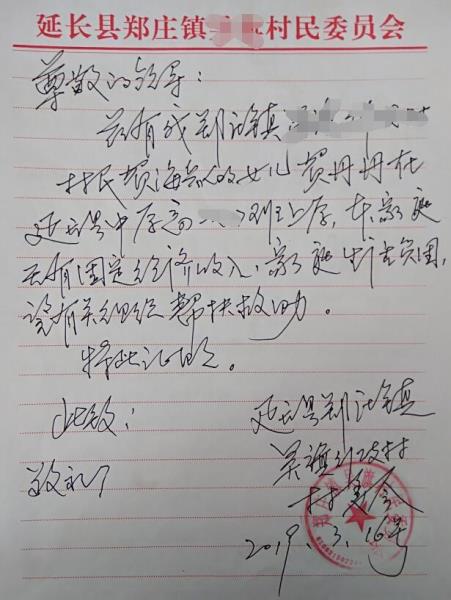 延长县郑庄镇村民委员会
尊敬的领导：
兹有我郑庄镇
村民贺海的女儿贺丹丹在
延长县中学高班上学，本家庭
无有固定经济收入，家庭生活贫困，
望有关组织帮扶救助。
特此证明。
此致：
敬礼
延长县郑庄镇
村
村委会
2019.3.16号